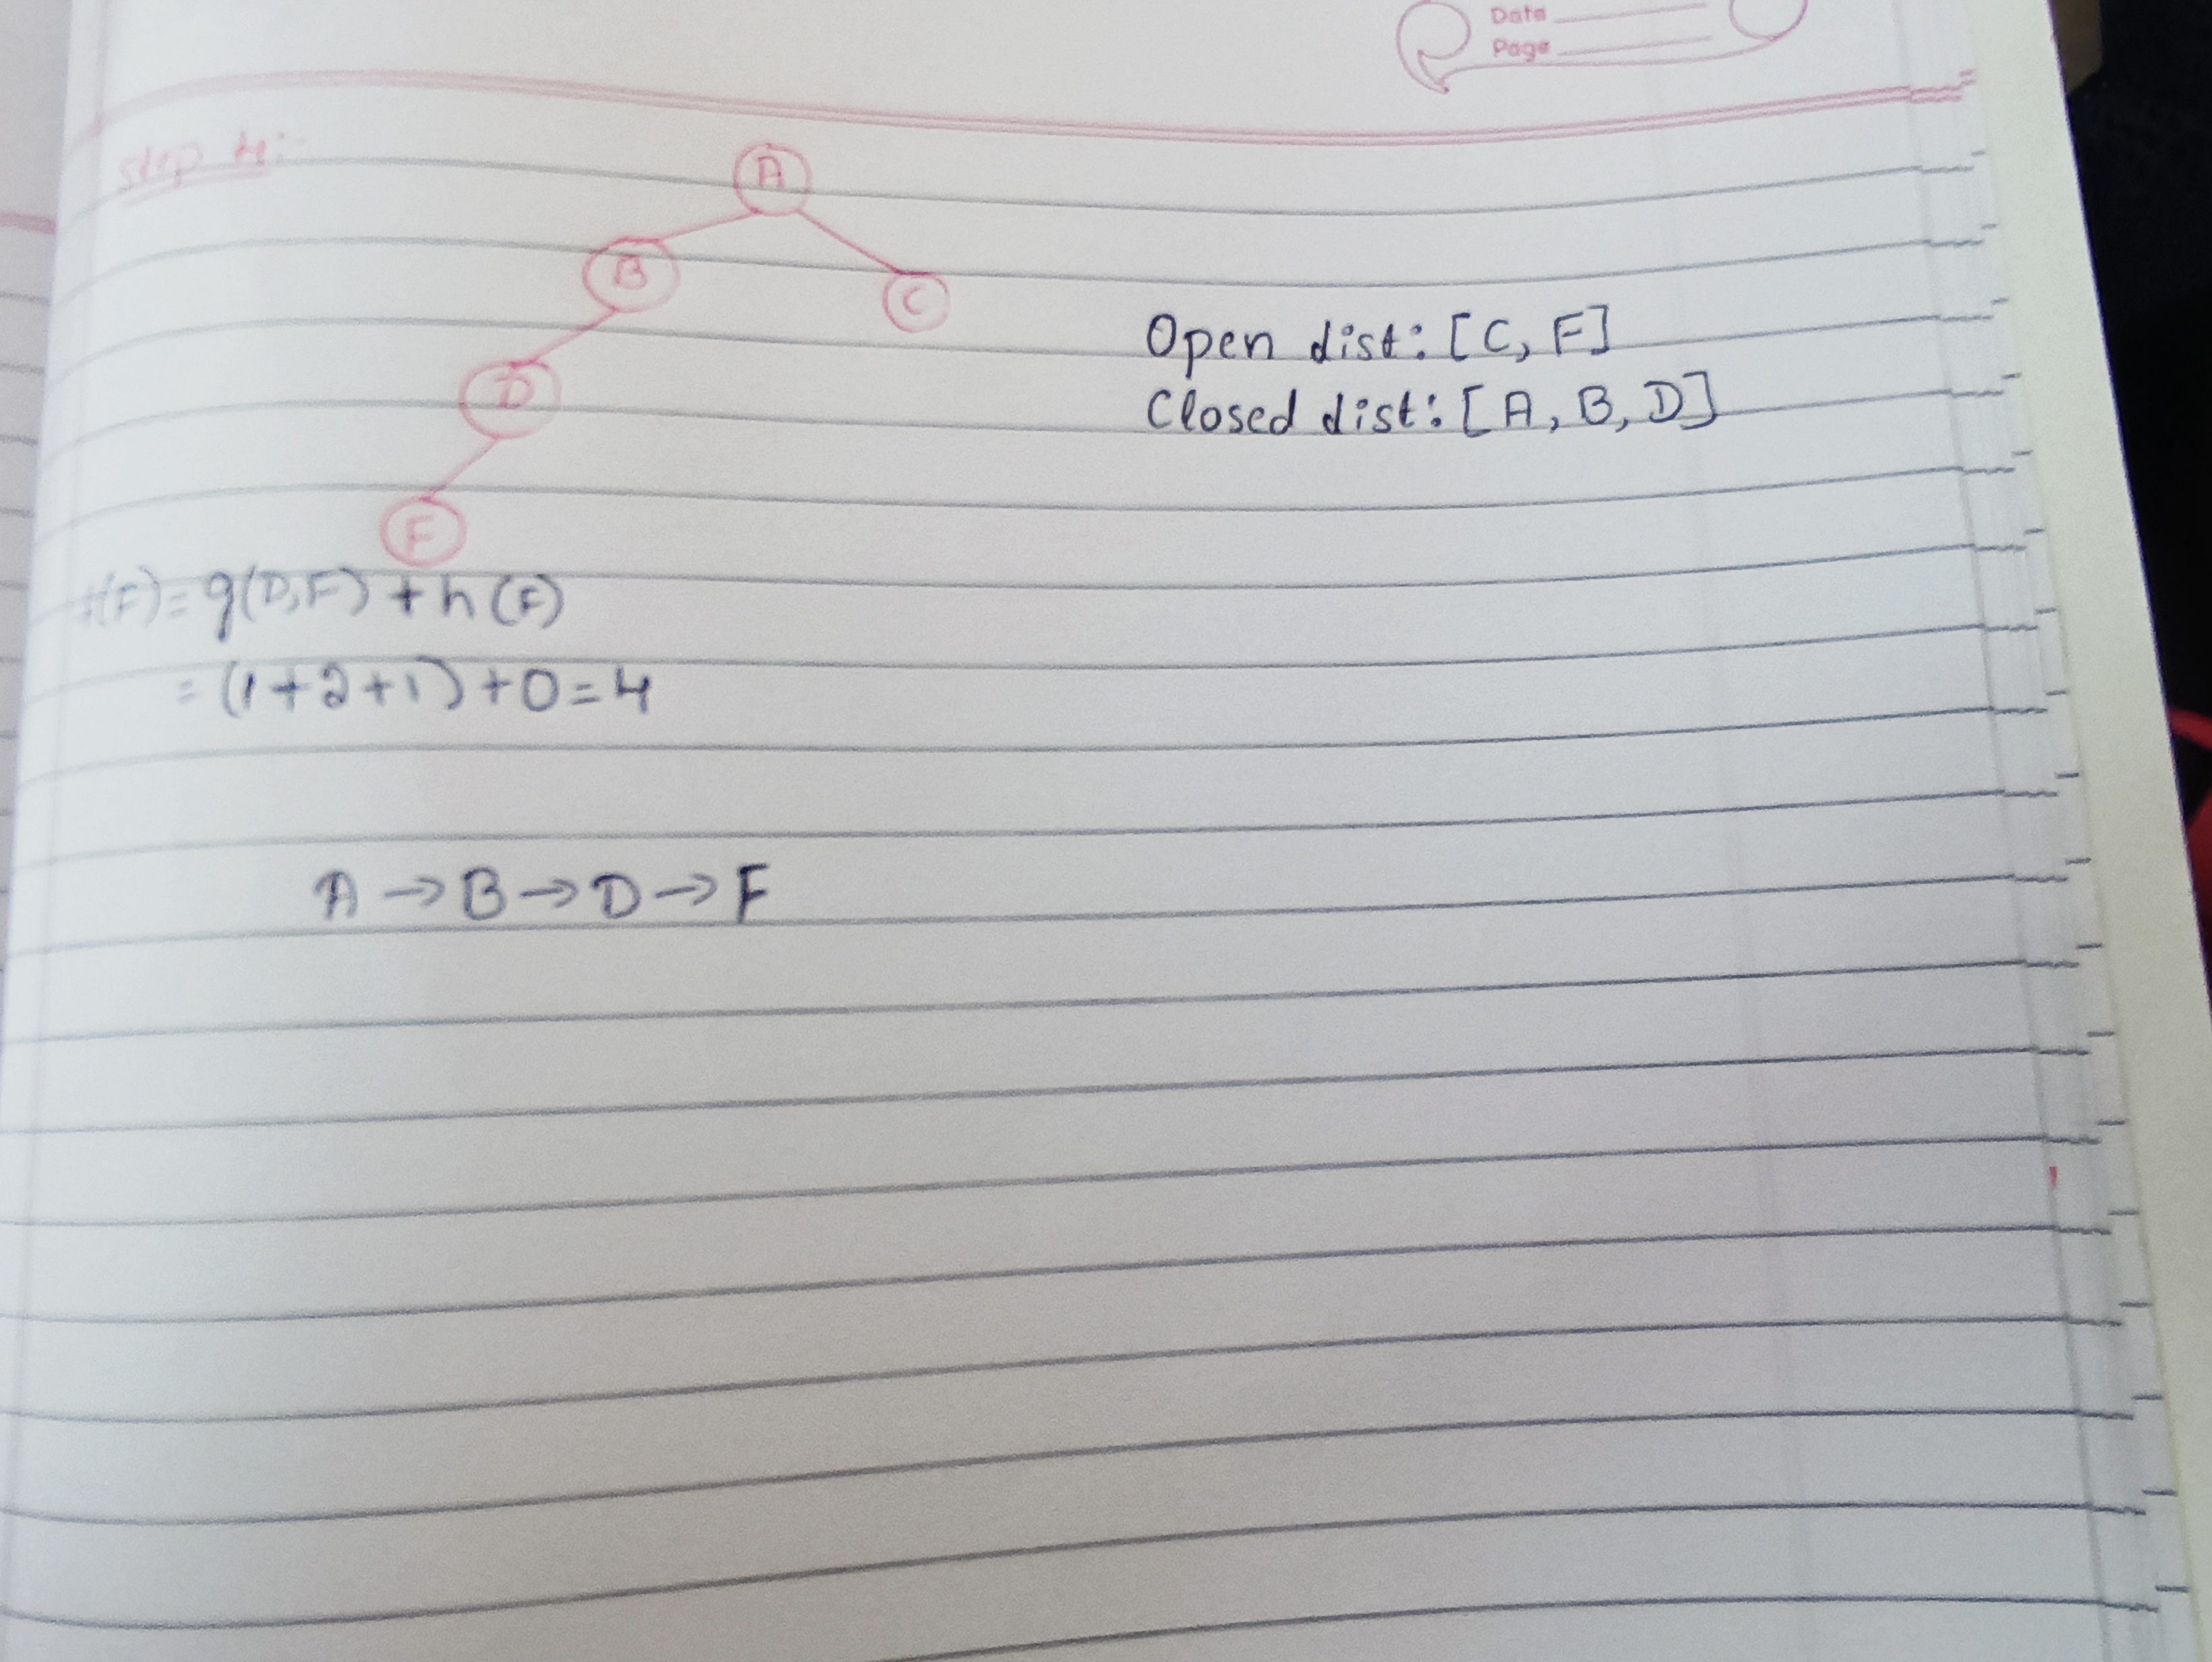 Date
Page
Step 4:-
A
B
C
Open dist: [C, F]
D
Closed dist: [A, B, D]
F
f(F) = g(D,F) + h(F)
= (1+2+1)+0=4
A → B → D → F